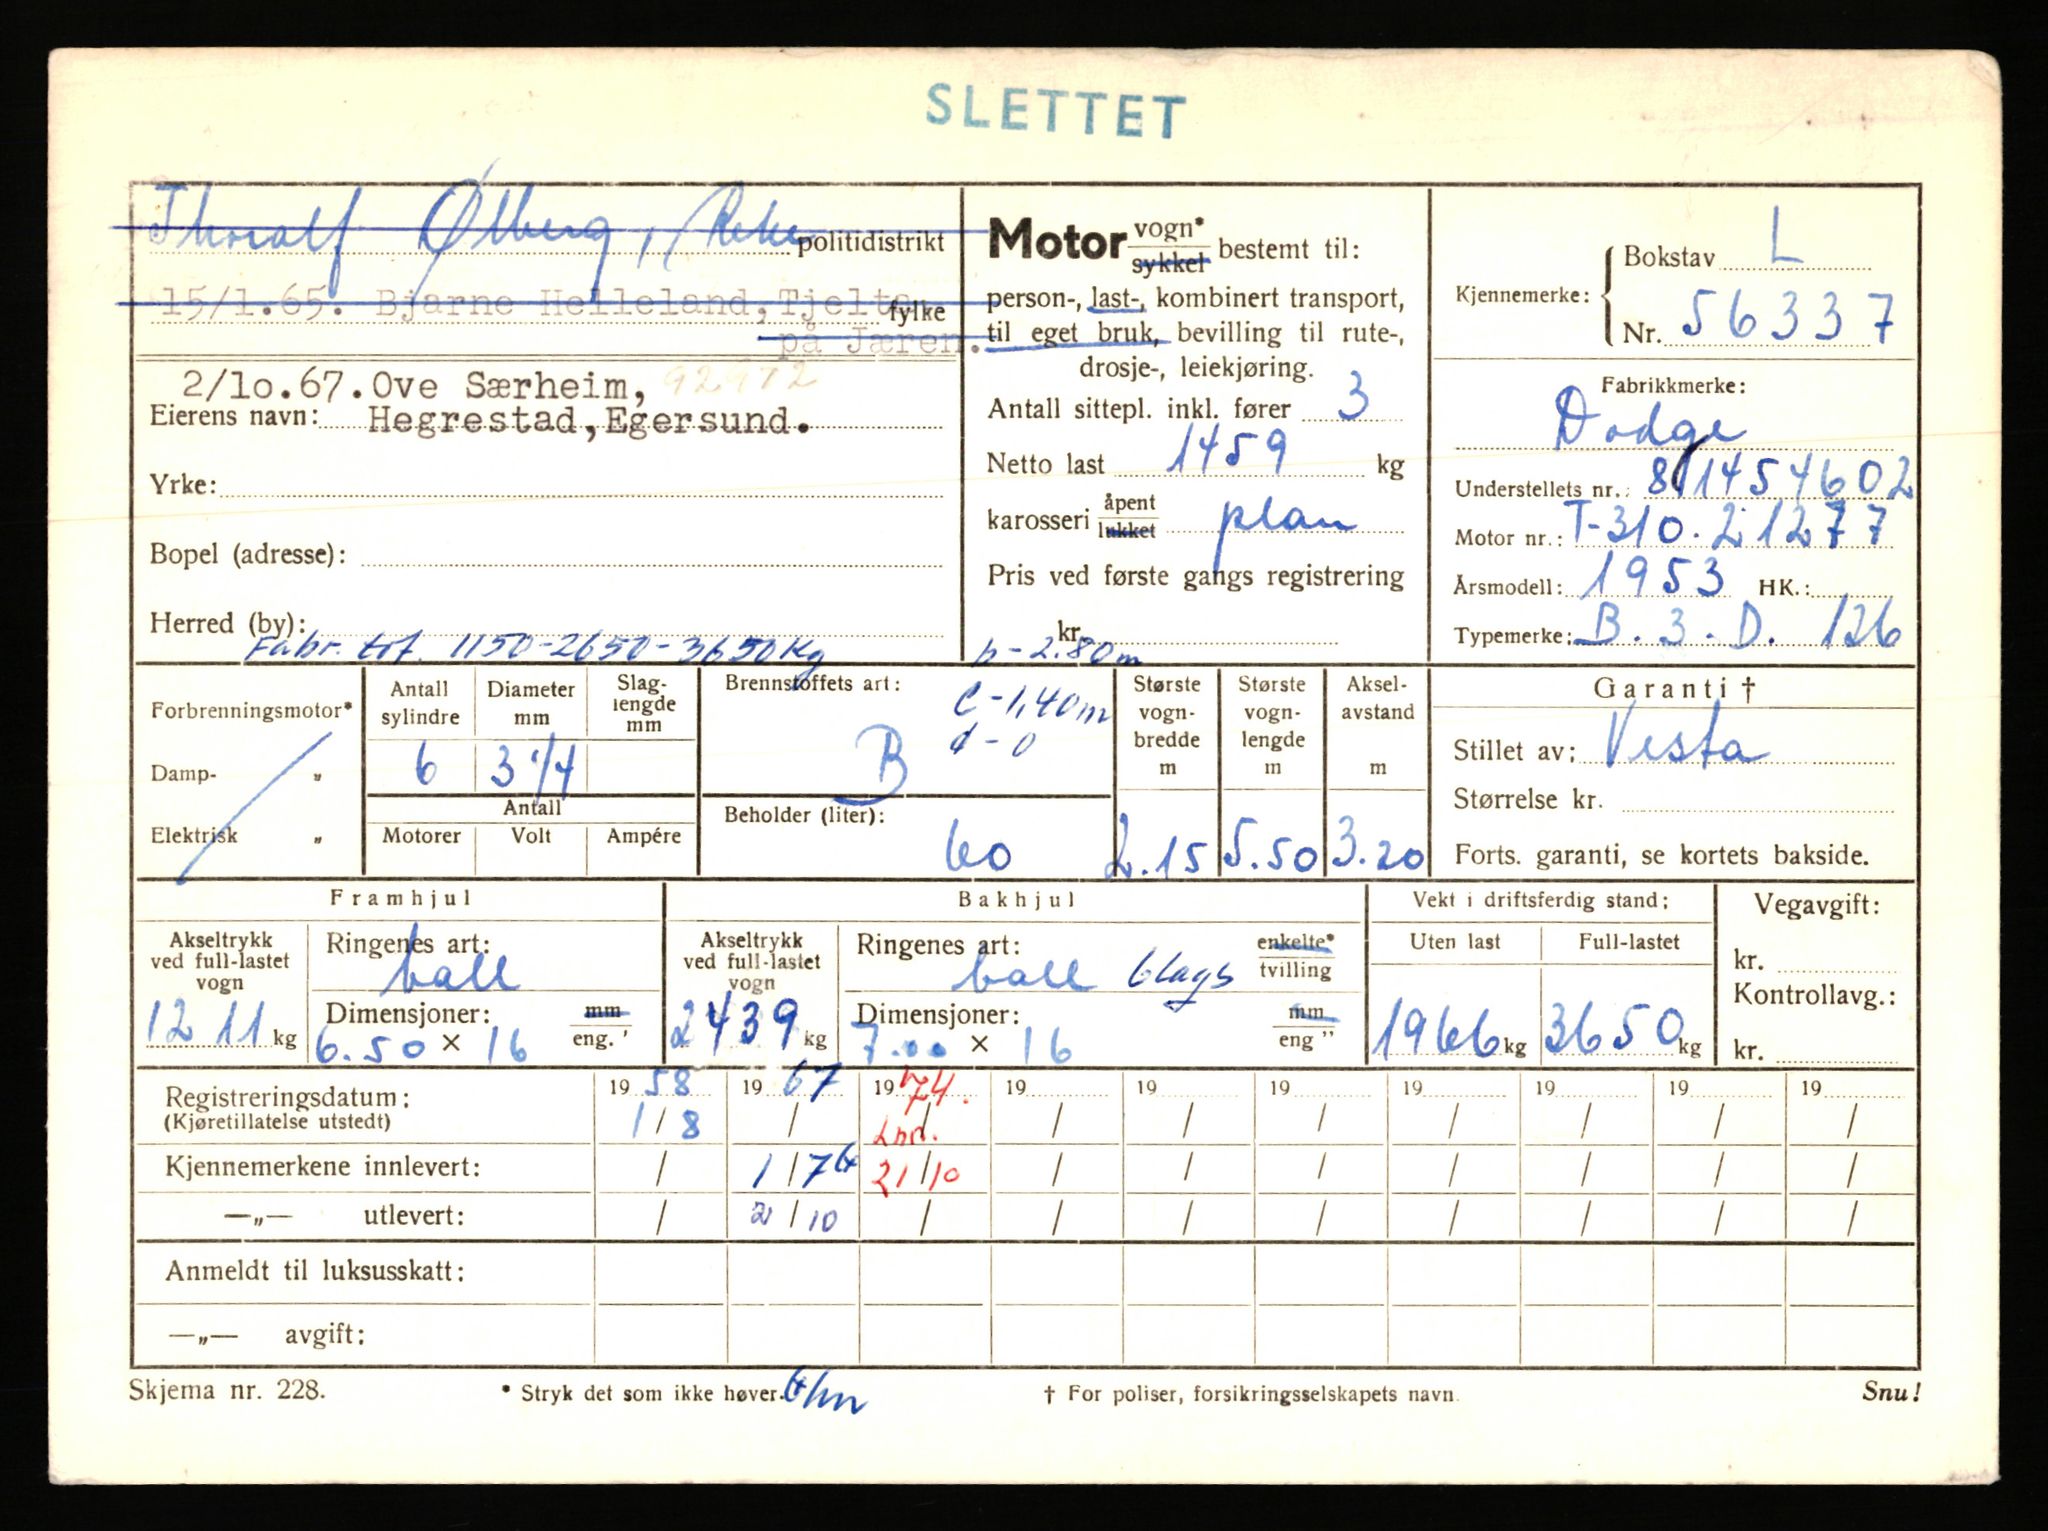 SLETTET
Thoralf Ølberg, Reke politidistrikt
15/1.65. Bjarne Helleland, Tjelta fylke
på Jæren.
2/10.67. Ove Særheim, 92972
Eierens navn: Hegrestad, Egersund.
Yrke:
Bopel (adresse):
Herred (by):
Fabr. tot. 1150-2650-3650 kg
Motor vogn* sykkel bestemt til:
person-, last-, kombinert transport,
til eget bruk, bevilling til rute-,
drosje-, leiekjøring.
Antall sittepl. inkl. fører 3
Netto last 1459 kg
karosseri åpent lukket plan
Pris ved første gangs registrering
kr.
b - 2.80 m
Kjennemerke: Bokstav L
Nr. 56337
Fabrikkmerke:
Dodge
Understellets nr.: 81454602
Motor nr.: T-310.21277
Årsmodell: 1953 HK.:
Typemerke: B.3.D. 126
Forbrenningsmotor*
Damp- „
Elektrisk „
Antall sylindre 6
Diameter mm 3 1/4
Slag-lengde mm
Antall
Motorer Volt Ampére
Brennstoffets art: B
c - 1,40 m
d - 0
Beholder (liter): 60
Største vogn-bredde m 2.15
Største vogn-lengde m 5.50
Aksel-avstand m 3.20
Garanti †
Stillet av: Vesta
Størrelse kr.
Forts. garanti, se kortets bakside.
Framhjul
Akseltrykk ved full-lastet vogn 1211 kg
Ringenes art: ball
Dimensjoner: mm eng. '
6.50 × 16
Bakhjul
Akseltrykk ved full-lastet vogn 2439 kg
Ringenes art: ball 6lags enkelte* tvilling
Dimensjoner: mm eng "
7.00 × 16
Vekt i driftsferdig stand:
Uten last Full-lastet
1966 kg 3650 kg
Vegavgift:
kr.
Kontrollavg.:
kr.
Registreringsdatum: 19 58 19 67 19 74. 19 19 19 19 19 19 19
(Kjøretillatelse utstedt) 1/8 / / / / / / / / /
Kjennemerkene innlevert: / 1/7 21/10 / / / / / / /
—„— utlevert: / 2/10 / / / / / / / /
Anmeldt til luksusskatt:
—„— avgift:
Skjema nr. 228. * Stryk det som ikke høver. † For poliser, forsikringsselskapets navn. Snu!